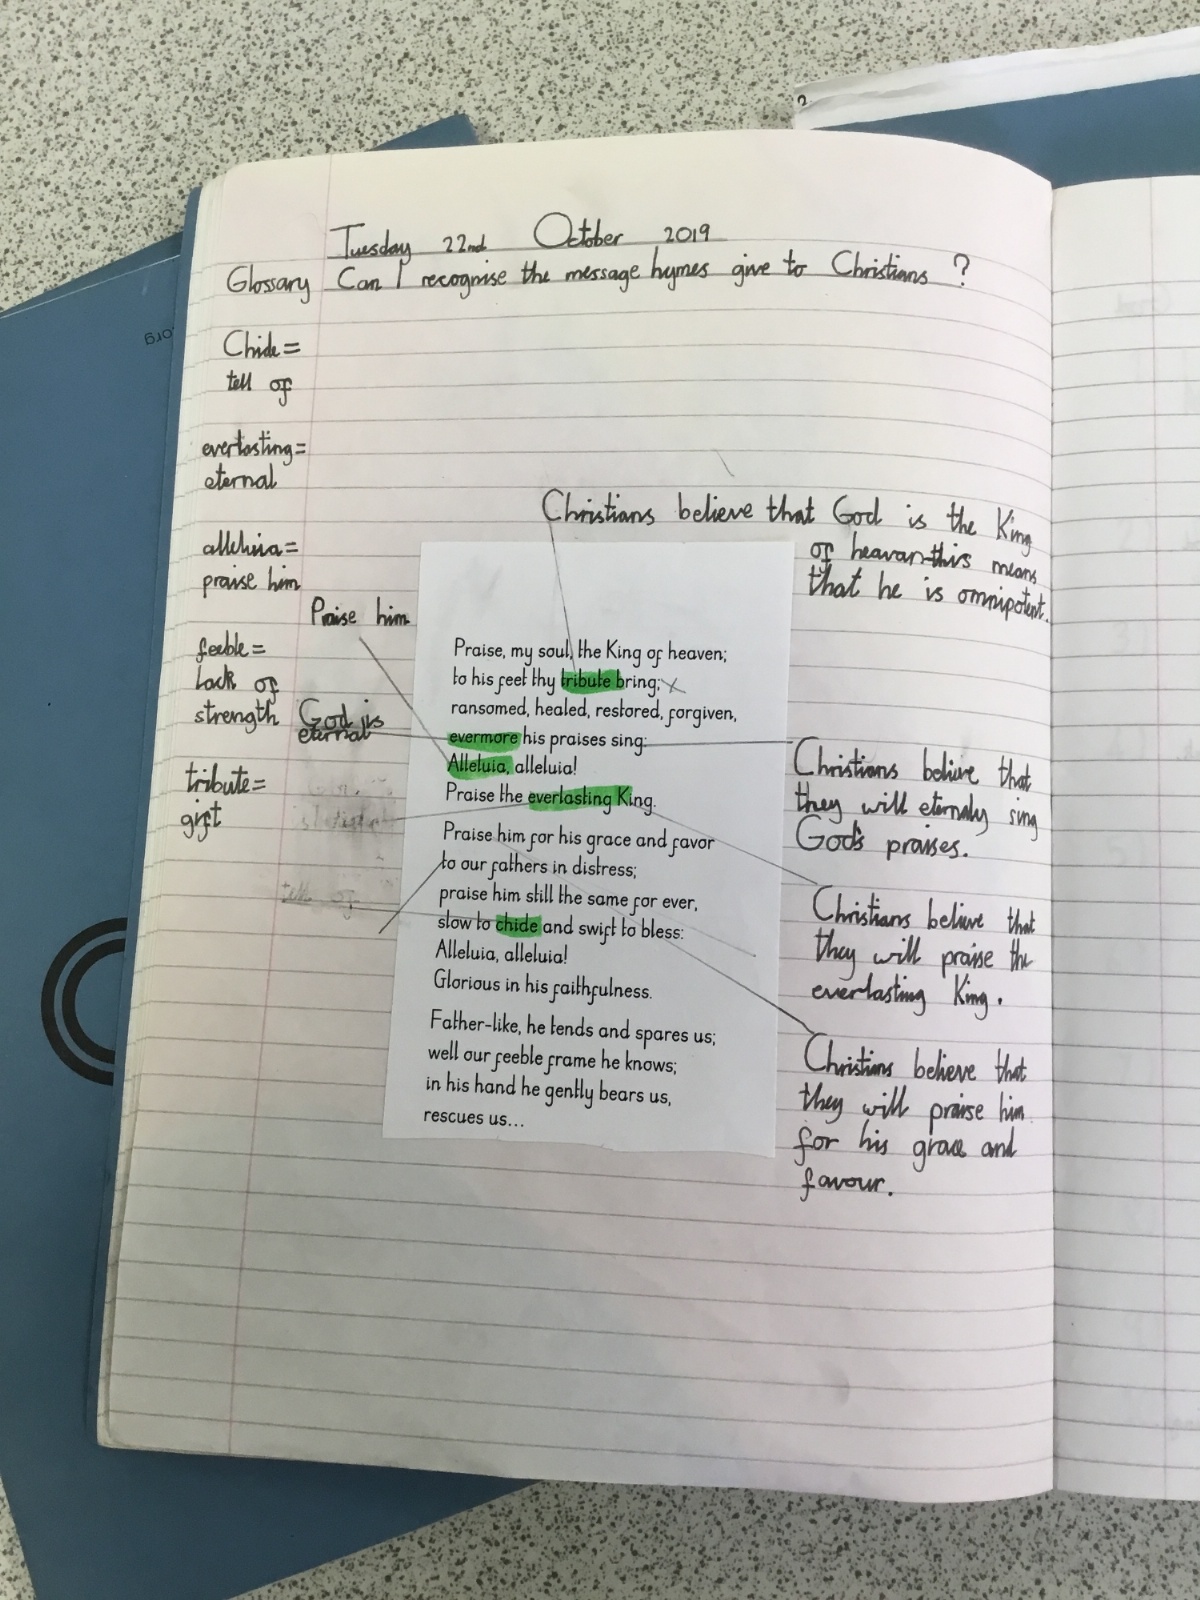 Tuesday 22nd October 2019
Glossary Can I recognise the message hymes give to Christians ?
Chide =
tell of
everlasting =
eternal
alleluia =
praise him
feeble =
lack of
strength
tribute =
gift
Praise him
God is
eternal
Christians believe that God is the King
of heavan-this means
that he is omnipotent.
Praise, my soul, the King of heaven;
to his feet thy tribute bring;
ransomed, healed, restored, forgiven,
evermore his praises sing:
Alleluia, alleluia!
Praise the everlasting King.
Praise him for his grace and favor
to our fathers in distress;
praise him still the same for ever,
slow to chide and swift to bless:
Alleluia, alleluia!
Glorious in his faithfulness.
Father-like, he tends and spares us;
well our feeble frame he knows;
in his hand he gently bears us,
rescues us...
Christians believe that
they will eternaly sing
God's praises.
Christians believe that
they will praise the
everlasting King.
Christians believe that
they will praise him
for his grace and
favour.
.org
2